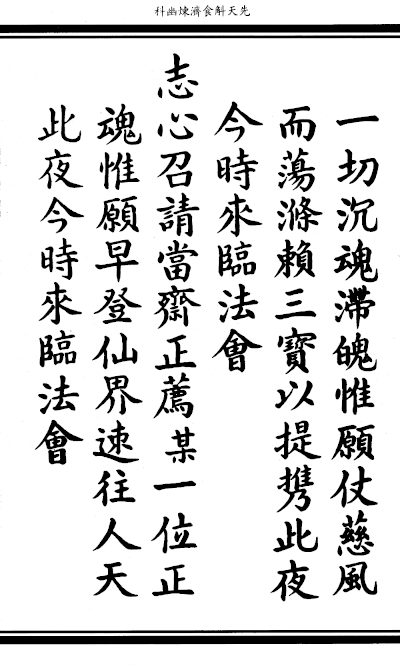 先天斛食濟煉幽科
一切沉魂滯魄惟願仗慈風
而蕩滌賴三寶以提携此夜
今時來臨法會
志心召請當齋正薦某一位正
魂惟願早登仙界速往人天
此夜今時來臨法會